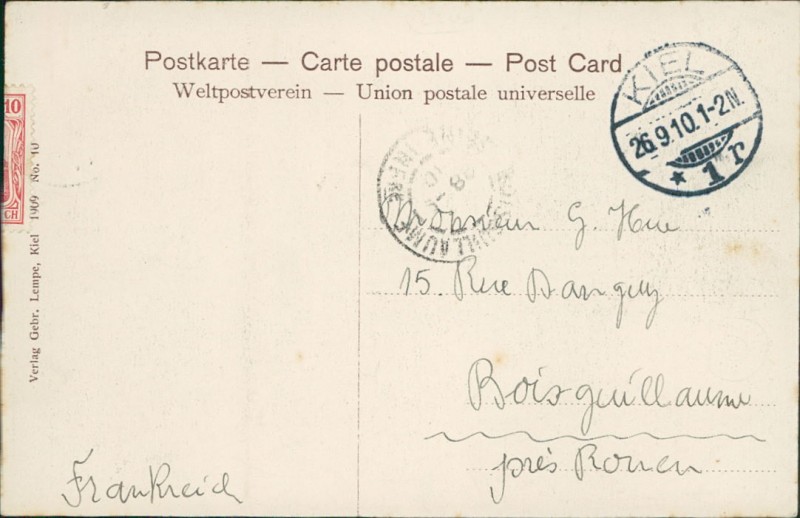 Postkarte — Carte postale — Post Card
Weltpostverein — Union postale universelle
KIEL
26.9.10.1-2N.
* 1 r
10
CH
Verlag Gebr. Lempe, Kiel 1909 No. 10
Monsieur G. Hue
15. Rue Danguy
Boisguillaume
près Rouen
Frankreich